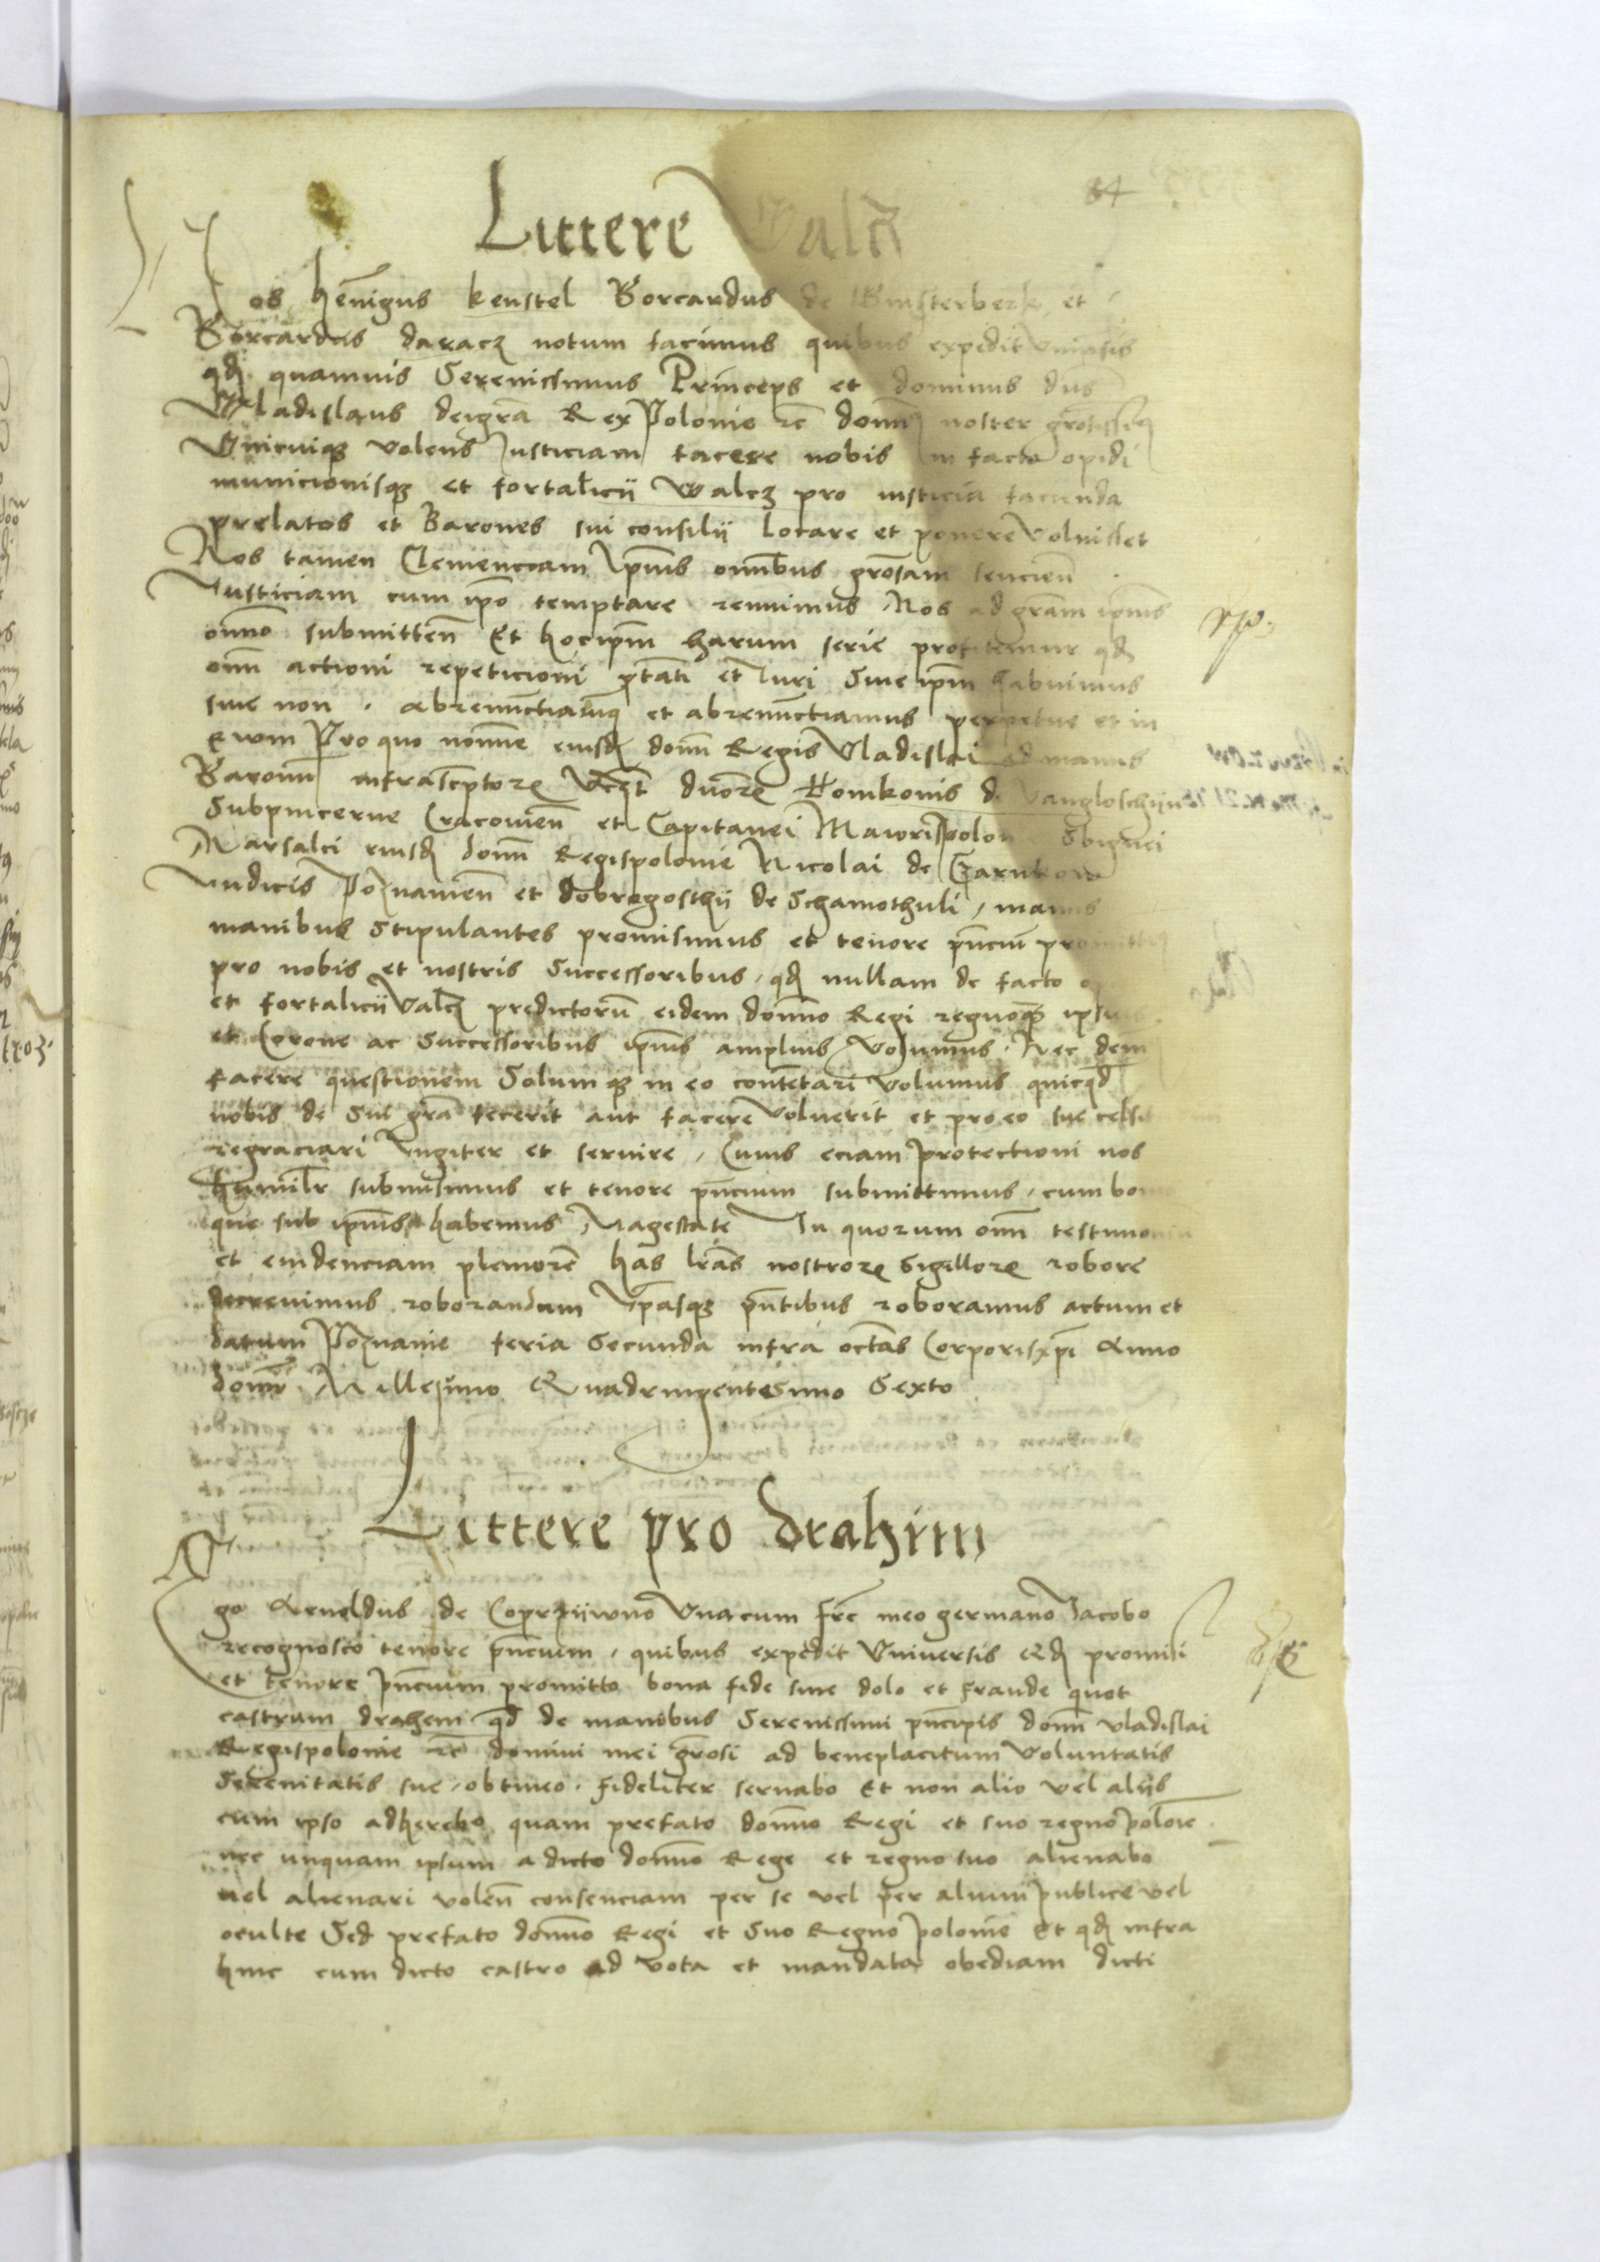 84
Littere Valcz
Nos hēnigus kenstel Borcardus de Ginsterberk et
Borcardus daracz notum facimus quibus expedit vniūsis
qđ quamuis Serenissimus Princeps et dominus dn̄s
Wladislaus deigrā Rex Polonie rc̄ domn̄ noster
Vnicuiqȝ volens Justiciam facere nobis in facto opidi
municionisqȝ et fortalicii Walcz pro insticia facienda
prelatos et Barones sui consilii locare et ponere voluisset
Nos tamen Clemenciam ipīus omnibus grōsam sencien̄
Justiciam cum ipō temptare rennimus Nos ad grām ipīus
omn̄o submitten̄ Et hocipm̄ harum serie profitemur qđ
om̄ī actioni repeticioni p̄tati et Juri Siue ipm̄ habuimus
siue non · abrenunctiauimus et abrenunctiamus perpetue et in
ewm Pro quo nomine eiusdē domn̄ Regis Vladislai ad manus
Baronū infrascptorꝝ duorꝝ Tomkonis de Vangloschijn
Subpincerne Cracouien̄ et Capitanei Maiorispolon Sbignei
Marsalci eiusdē domn̄ Regispolonie Nicolai de Czarnkow
Judicis Poznanien̄ et dobrogosthii de Schamothuli / manus
manibus Stipulantes promisimus et tenore pn̄cium
pro nobis et nostris Successoribus · qđ nullam de facto
et fortalicii Valcz predictorū eidem domn̄o Regi regnoqȝ ipsius
et Corone ac Successoribus ipīus amplius volumus · Nec
facere questionem Solumqȝ in eo contētari volumus quicqđ
nobis de Sue grā fecerit aut facere voluerit et pro eo sue
regraciari Jugiter et seruire / Cuius eciam protectioni nos
humilr̄ submisimus et tenore pn̄cium submittimus / cum
que sub ipīus habemus Magestate In quorum om̄ī
et euidenciam pleniorē has lrās nostrorꝝ Sigillorꝝ robore
decreuimus roborandum Ipasqȝ pn̄tibus roboramus actum et
datum Poznanie feria Secunda infra octās Corporisxpī Anno
domn̄ Millesimo Quadringentesimo Sexto
Littere pro drahim
Ego Arnoldus de Coprzijwno Vnacum frē meo germano Jacobo
recognosco tenore pn̄cium / quibus expedit Vniuersis Qđ promisi
et tenore pn̄cium promitto bona fide sine dolo et fraude quot
castrum drahem qđ de manibus Serenissimi pn̄cipis domn̄ vladislai
Regispolonie rc̄ domini mei grōsi ad beneplacitum Voluntatis
Serenitatis sue / obtineo · fideliter seruabo Et non alio vel aliis
cum ipso adherebo quam prefato domn̄o Regi et suo regno polonie ·
nec unquam ipsum a dicto domn̄o Rege et regno suo alienabo
uel alienari volen̄ consenciam per se vel per alium publice vel
oculte Sed prefato domn̄o Regi et Suo Regno polonie Et qđ infra
hinc cum dicto castro ad vota et mandata obediam dicti